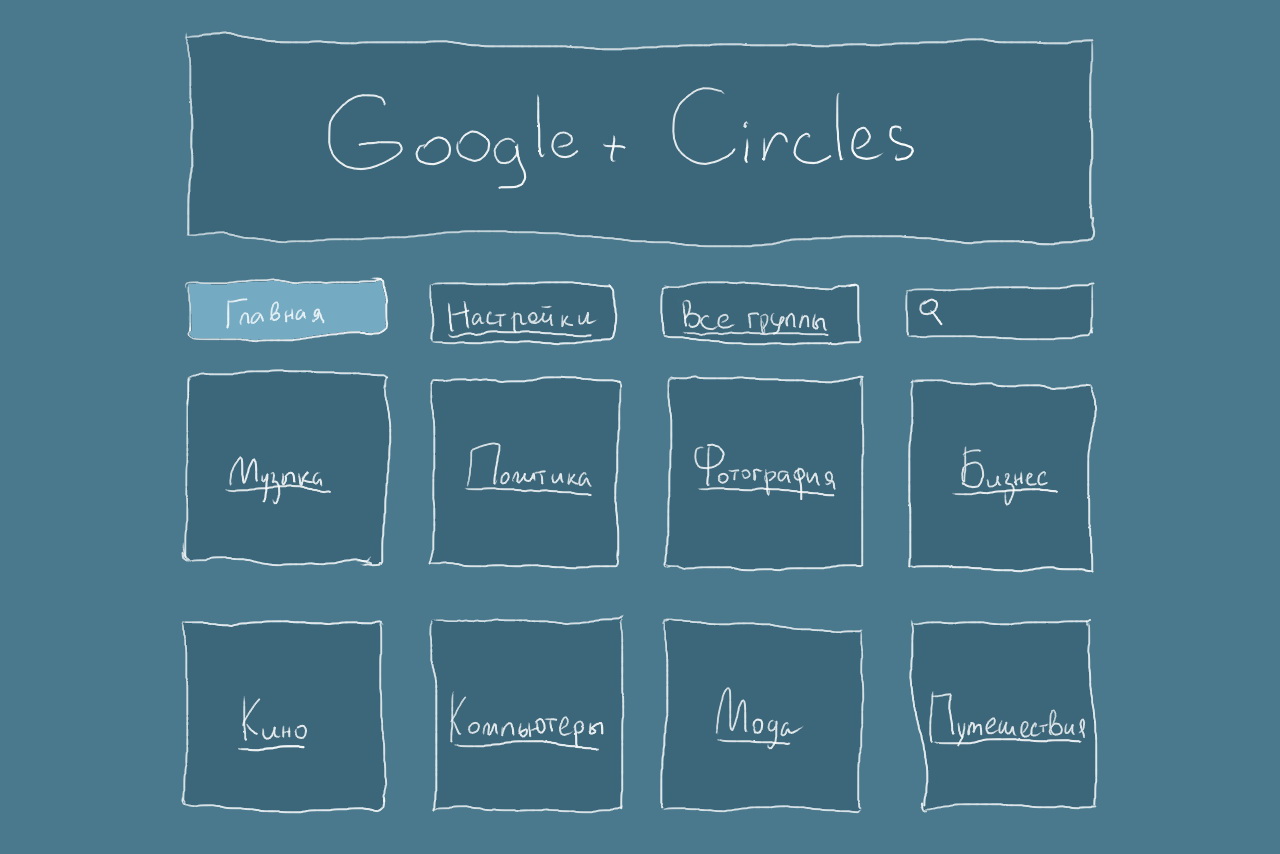 Google + Circles
Главная Настройки Все группы
Музыка Политика Фотография Бизнес
Кино Компьютеры Мода Путешествия